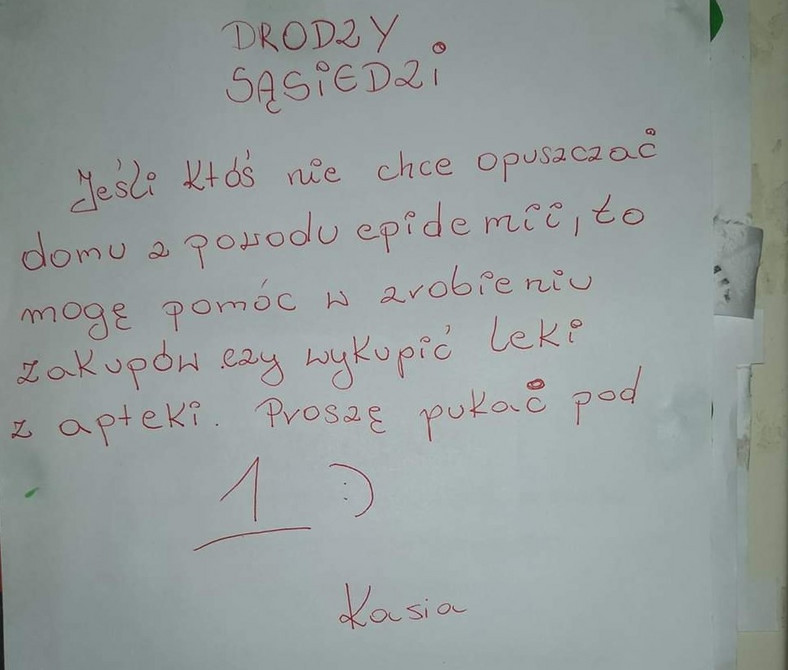 DRODZY
SĄSIEDZI
Jeśli ktoś nie chce opuszczać
domu z powodu epidemii, to
mogę pomóc w zrobieniu
zakupów czy wykupić leki
z apteki. Proszę pukać pod
1 :)
Kasia